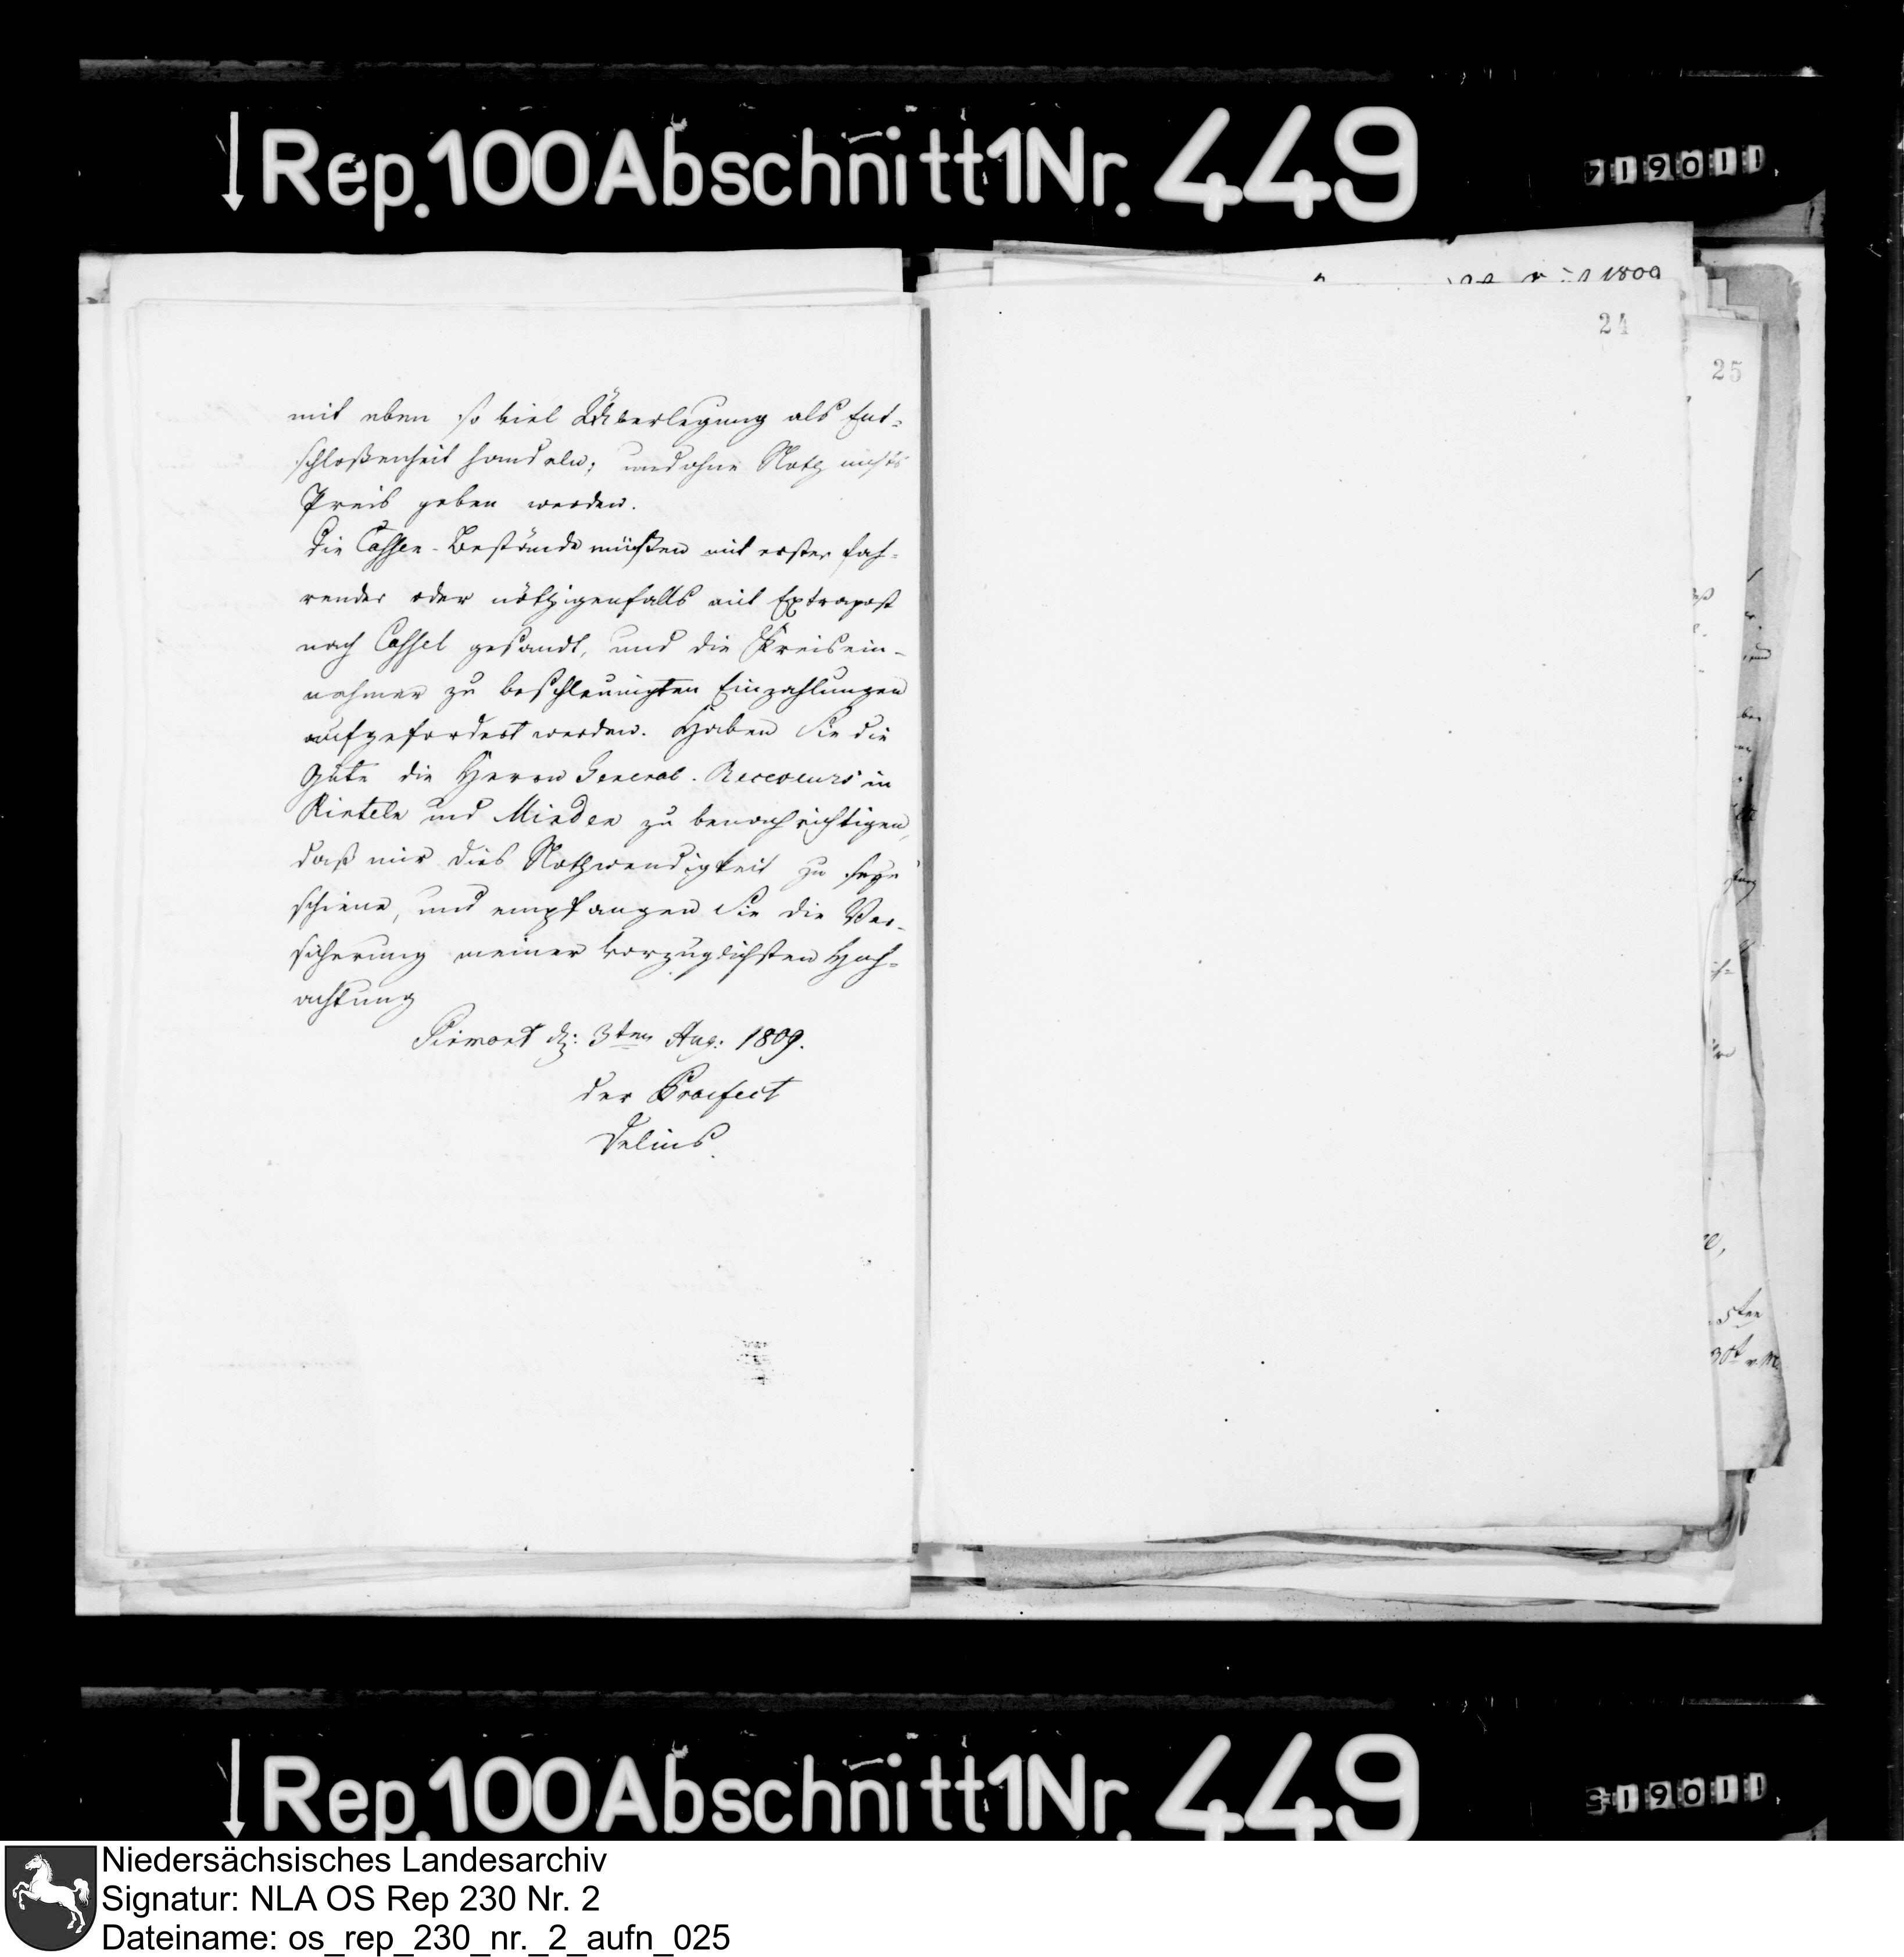 Rep.100Abschnitt1Nr.449
24
25
mit eben so viel Überlegung als Ent-
schloßenheit handeln, und ohne Noth nichts
Preis geben werden.
Die Cassen-Bestände müßten mit erster fah-
render oder nöthigenfalls mit Extrapost
nach Cassel gesandt, und die Kreisein-
nehmer zu beschleunigten Einzahlungen
aufgefordert werden. Haben Sie die
Güte die Herrn General-Receveurs in
Rinteln und Minden zu benachrichtigen,
daß mir dies Nothwendigkeit zu seyn
schiene, und empfangen Sie die Ver-
sicherung meiner vorzüglichsten Hoch-
achtung
Pirmont d: 3ten Aug: 1809.
der Praefect
Delius.
Rep.100Abschnitt1Nr.449
Niedersächsisches Landesarchiv
Signatur: NLA OS Rep 230 Nr. 2
Dateiname: os_rep_230_nr._2_aufn_025